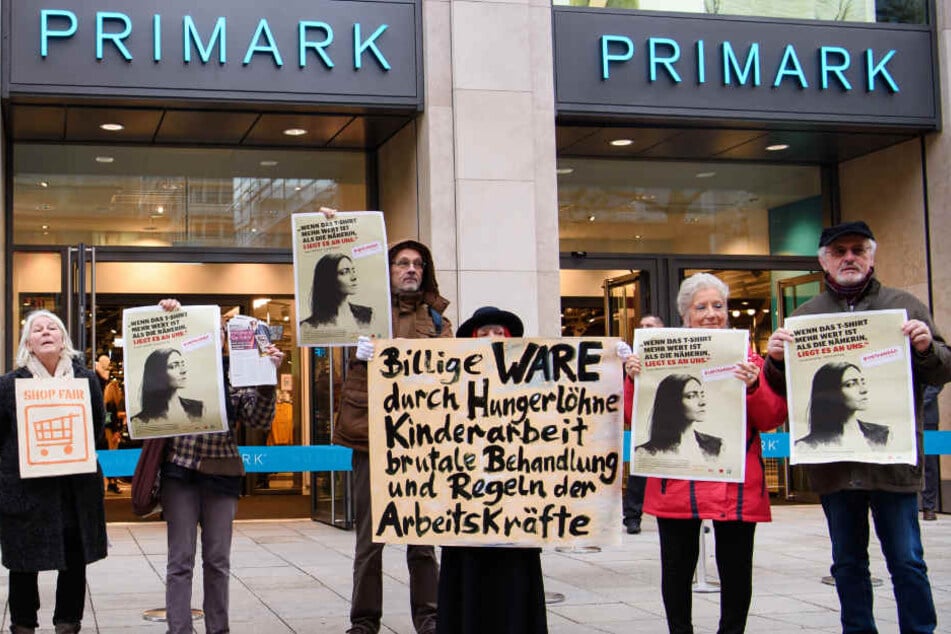 PRIMARK
PRIMARK
„WENN DAS T-SHIRT
MEHR WERT IST
ALS DIE NÄHERIN,
LIEGT ES AN UNS.“
„WENN DAS T-SHIRT
MEHR WERT IST
ALS DIE NÄHERIN,
LIEGT ES AN UNS.“
„WENN DAS T-SHIRT
MEHR WERT IST
ALS DIE NÄHERIN,
LIEGT ES AN UNS.“
„WENN DAS T-SHIRT
MEHR WERT IST
ALS DIE NÄHERIN,
LIEGT ES AN UNS.“
SHOP FAIR
Billige WARE
durch Hungerlöhne
Kinderarbeit
brutale Behandlung
und Regeln der
Arbeitskräfte